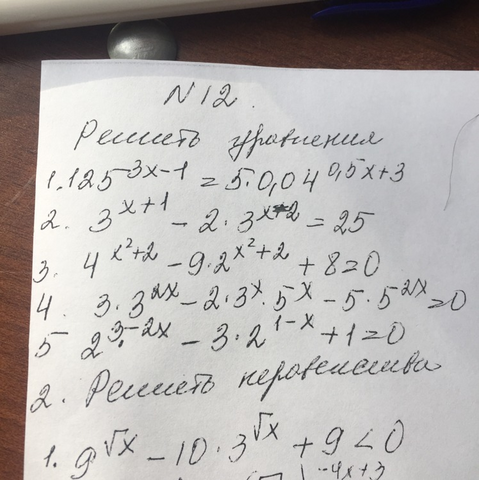 N12.
Решить уравнения
1. 125^{3x-1} = 5·0,04^{0,5x+3}
2. 3^{x+1} - 2·3^{x-2} = 25
3. 4^{x²+2} - 9·2^{x²+2} + 8=0
4. 3·3^{2x} - 2·3^x·5^x - 5·5^{2x}=0
5 2^{3-2x} - 3·2^{1-x} +1=0
2. Решить неравенства
1. 9^{√x} - 10·3^{√x} + 9 < 0
-4x+3